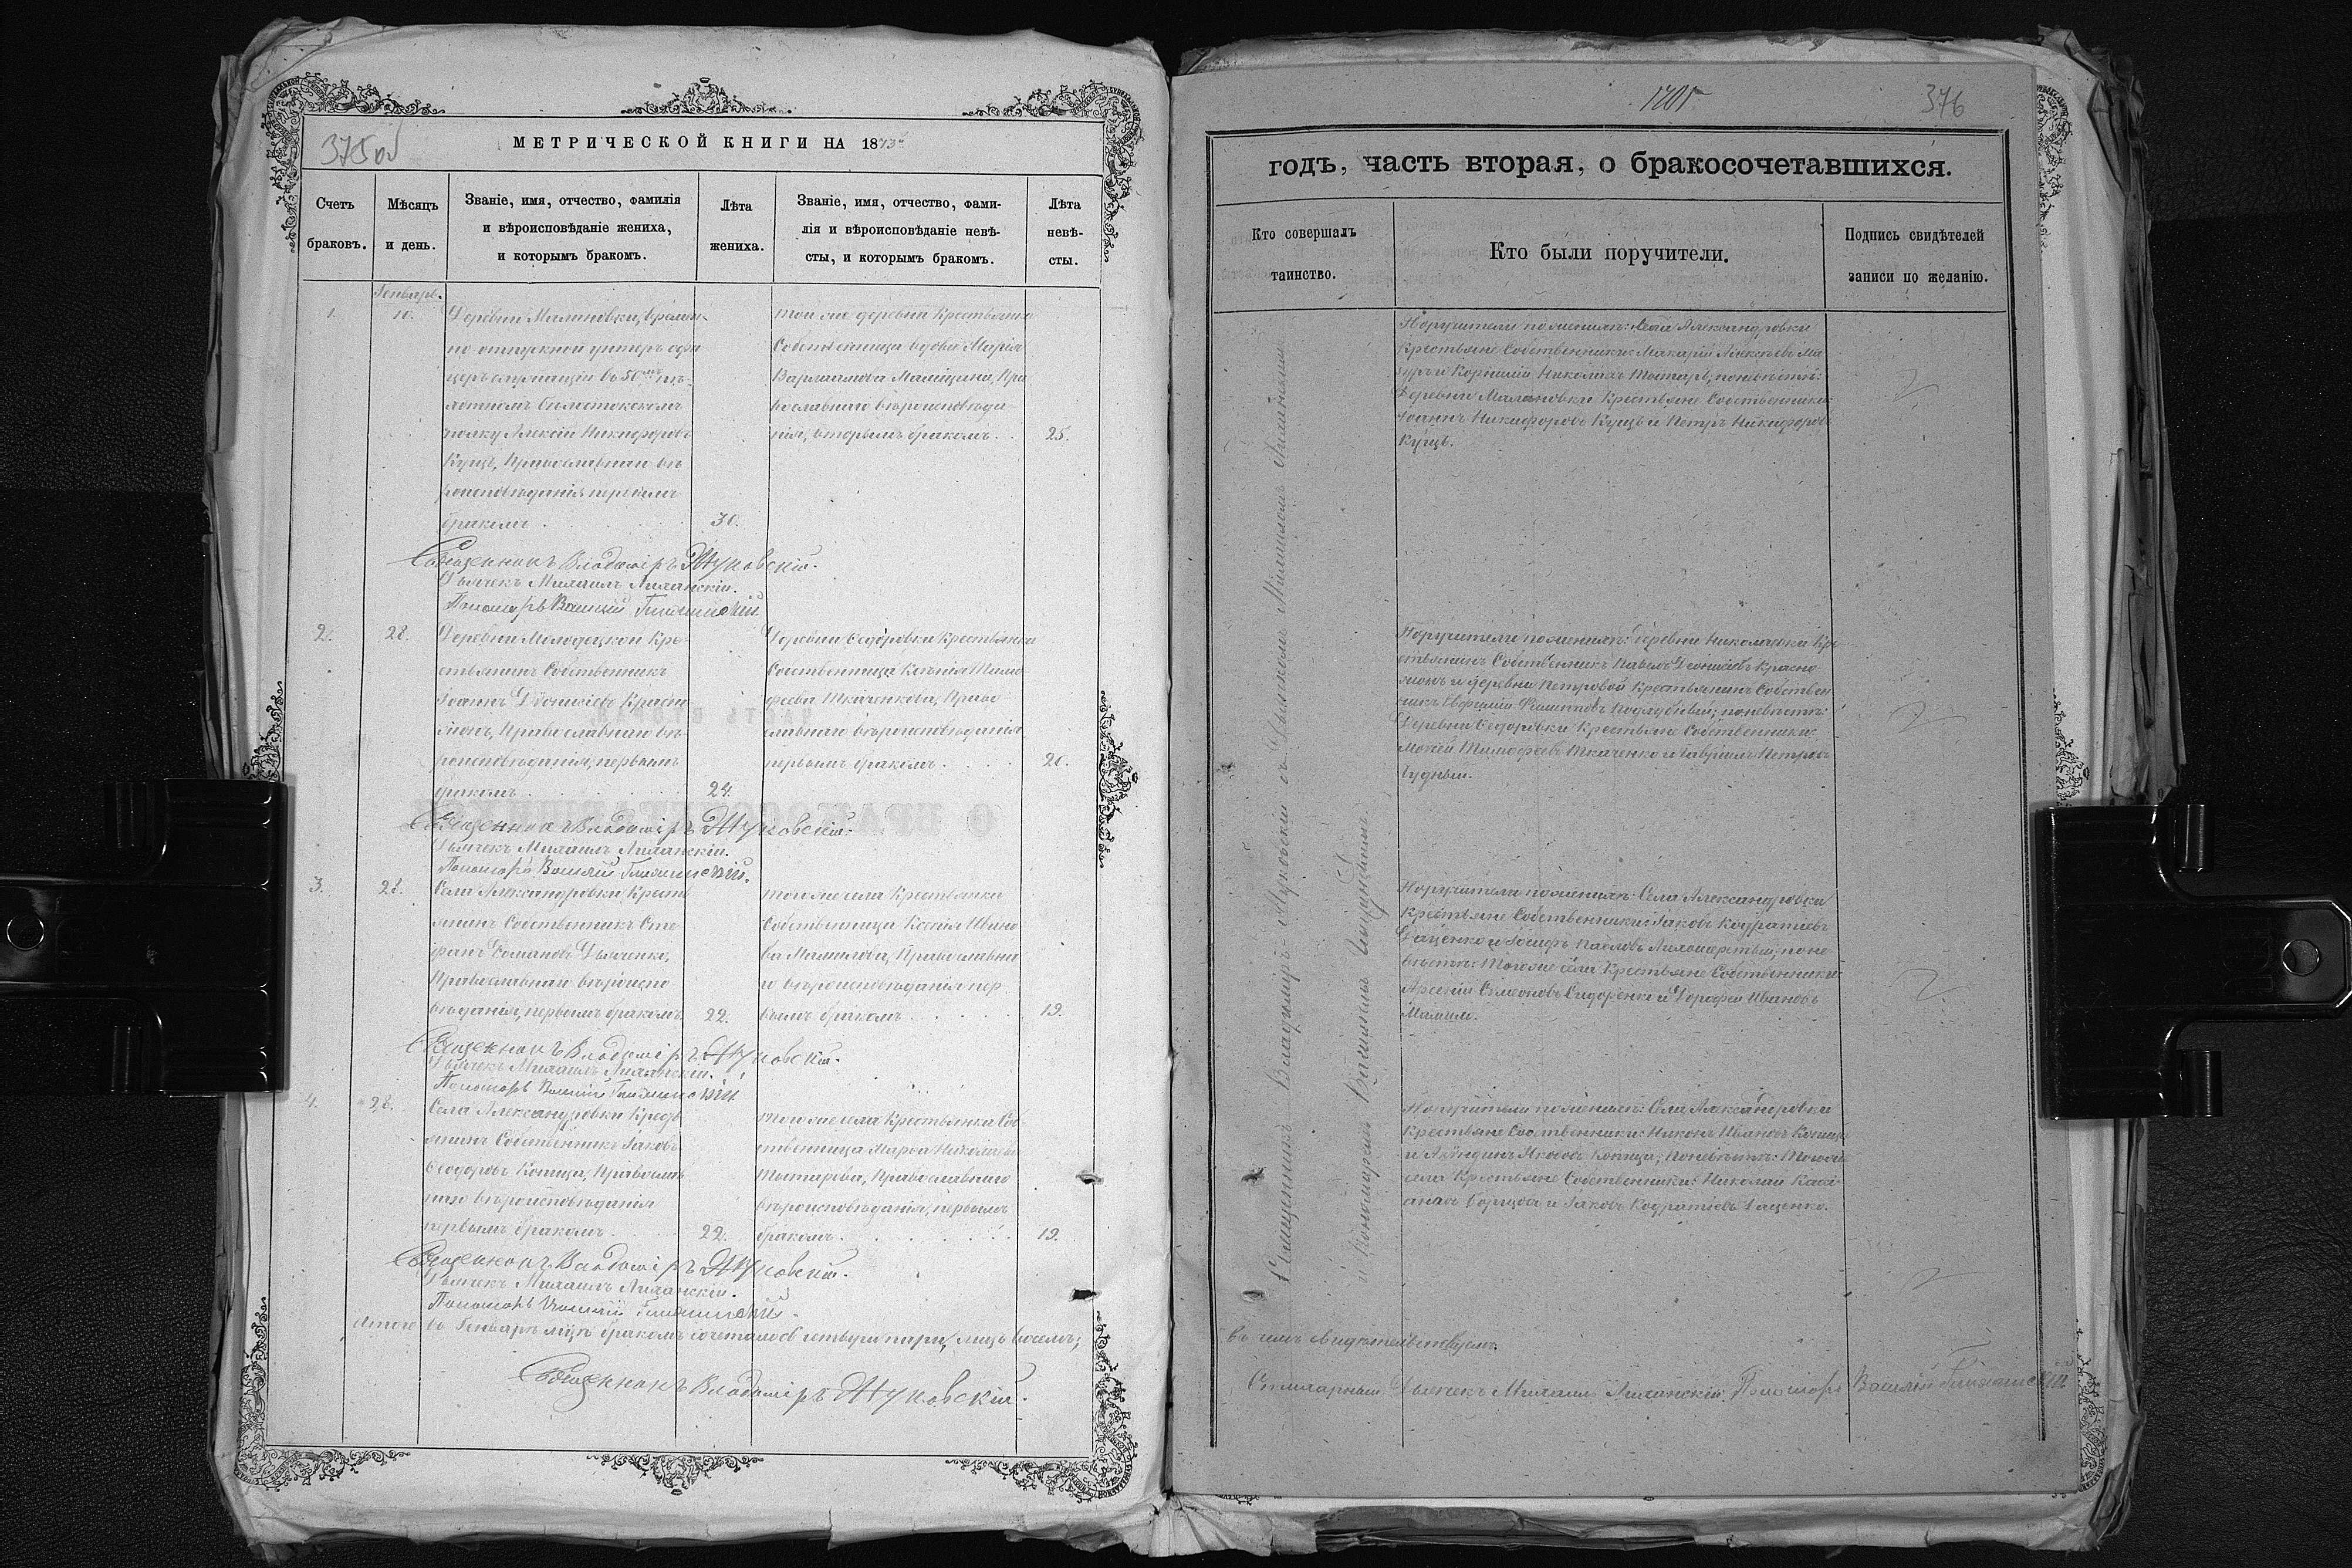 375об
МЕТРИЧЕСКОЙ КНИГИ НА 1873й
Счетъ браковъ.
Мѣсяцъ и день.
Званіе, имя, отчество, фамилія
и вѣроисповѣданіе жениха,
и которымъ бракомъ.
Лѣта жениха.
Званіе, имя, отчество, фами-
лія и вѣроисповѣданіе невѣ-
сты, и которымъ бракомъ.
Лѣта
невѣ-
сты.
Генварь.
1.
10.
Деревни Малиновки, времен-
но отпускной унтеръ офи
церъ служащій въ 50мъ пѣ-
хотномъ Бѣлостокскомъ
полку Алексій Никифоровъ
Куцъ, Православнаго вѣ
роисповѣданія первымъ
бракомъ
30.
той же деревни Крестьянка
Собственница вдова Марія
Варлаамова, Пра
вославнаго вѣроисповѣда
нія, вторымъ бракомъ.
25.
Священникъ Владиміръ Жуковскій.
Дьячекъ Михаилъ
Пономарь Василій
2.
28.
Деревни Молодецкой Кре-
стьянинъ Собственникъ
Іоаннъ Діонисіевъ Красно
жонъ, Православнаго вѣ-
роисповѣданія, первымъ
бракомъ
24.
Деревни Федоровки Крестьянка
Собственница Тимо
феева Ткаченкова, Право
славнаго вѣроисповѣданія
первымъ бракомъ.
21.
Священникъ Владиміръ Жуковскій.
Дьячекъ Михаилъ
Пономарь Василій
3.
28.
Села Александровки Кресть
янинъ Собственникъ Сте
фанъ Романовъ Дьяченко,
Православнаго вѣроиспо
вѣданія, первымъ бракомъ
22.
того же села Крестьянка
Собственница Ксенія Ивано
ва, Православна
го вѣроисповѣданія пер
вымъ бракомъ
19.
Священникъ Владиміръ Жуковскій.
Дьячекъ Михаилъ
Пономарь Василій
4.
28.
Села Александровки Кресть
янинъ Собственникъ Іаковъ
Ѳеодоровъ Копица, Православ
наго вѣроисповѣданія
первымъ бракомъ
22.
того же села Крестьянка Соб-
ственница Марѳа Николаева
Православнаго
вѣроисповѣданія, первымъ
бракомъ.
19.
Священникъ Владиміръ Жуковскій.
Дьячекъ Михаилъ
Пономарь Василій
Итого въ Генварѣ м-цѣ бракомъ сочеталось четыри пары, лицъ восемъ;
Священникъ Владиміръ Жуковскій.
376
годъ, часть вторая, о бракосочетавшихся.
Кто совершалъ
таинство.
Кто были поручители.
Подпись свидѣтелей
записи по желанію.
Священникъ Владиміръ Жуковскій съ Дьячкомъ Михаиломъ
и Пономаремъ Василіемъ
Поручители по женихѣ: Села Александровки
Крестьяне Собственники: Макарій Алексѣевъ Ма
и Корнилій Николаевъ по невѣстѣ:
Деревни Малиновки Крестьяне Собственники:
Іоаннъ Никифоровъ Куцъ и Петръ Никифоровъ
Куцъ.
Поручители по женихѣ: Деревни Николаевки Кре
стьянинъ Собственникъ Павелъ Діонисіевъ Красно
жонъ и деревни Петровой Крестьянинъ Собствен
никъ Филиповъ по невѣстѣ:
Деревни Федоровки Крестьяне Собственники:
Мокей Тимофеевъ Ткаченко и Гавріилъ Петровъ
Поручители по женихѣ: Села Александровки
Крестьяне Собственники: Іаковъ Кодратіевъ
Даценко и Іосифъ Павловъ по не
вѣстѣ: того же села Крестьяне Собственники:
Арсеній Симеоновъ Сидоренко и Дорофей Ивановъ
Поручители по женихѣ: Села Александровки
Крестьяне Собственники: Никонъ Ивановъ Копица
и Яковъ Копица; по невѣстѣ: того же
села Крестьяне Собственники: Николай Касі
ановъ и Іаковъ Кодратіевъ Даценко.
въ чемъ свидѣтельствуемъ.
Дьячекъ Михаилъ Пономарь Василій